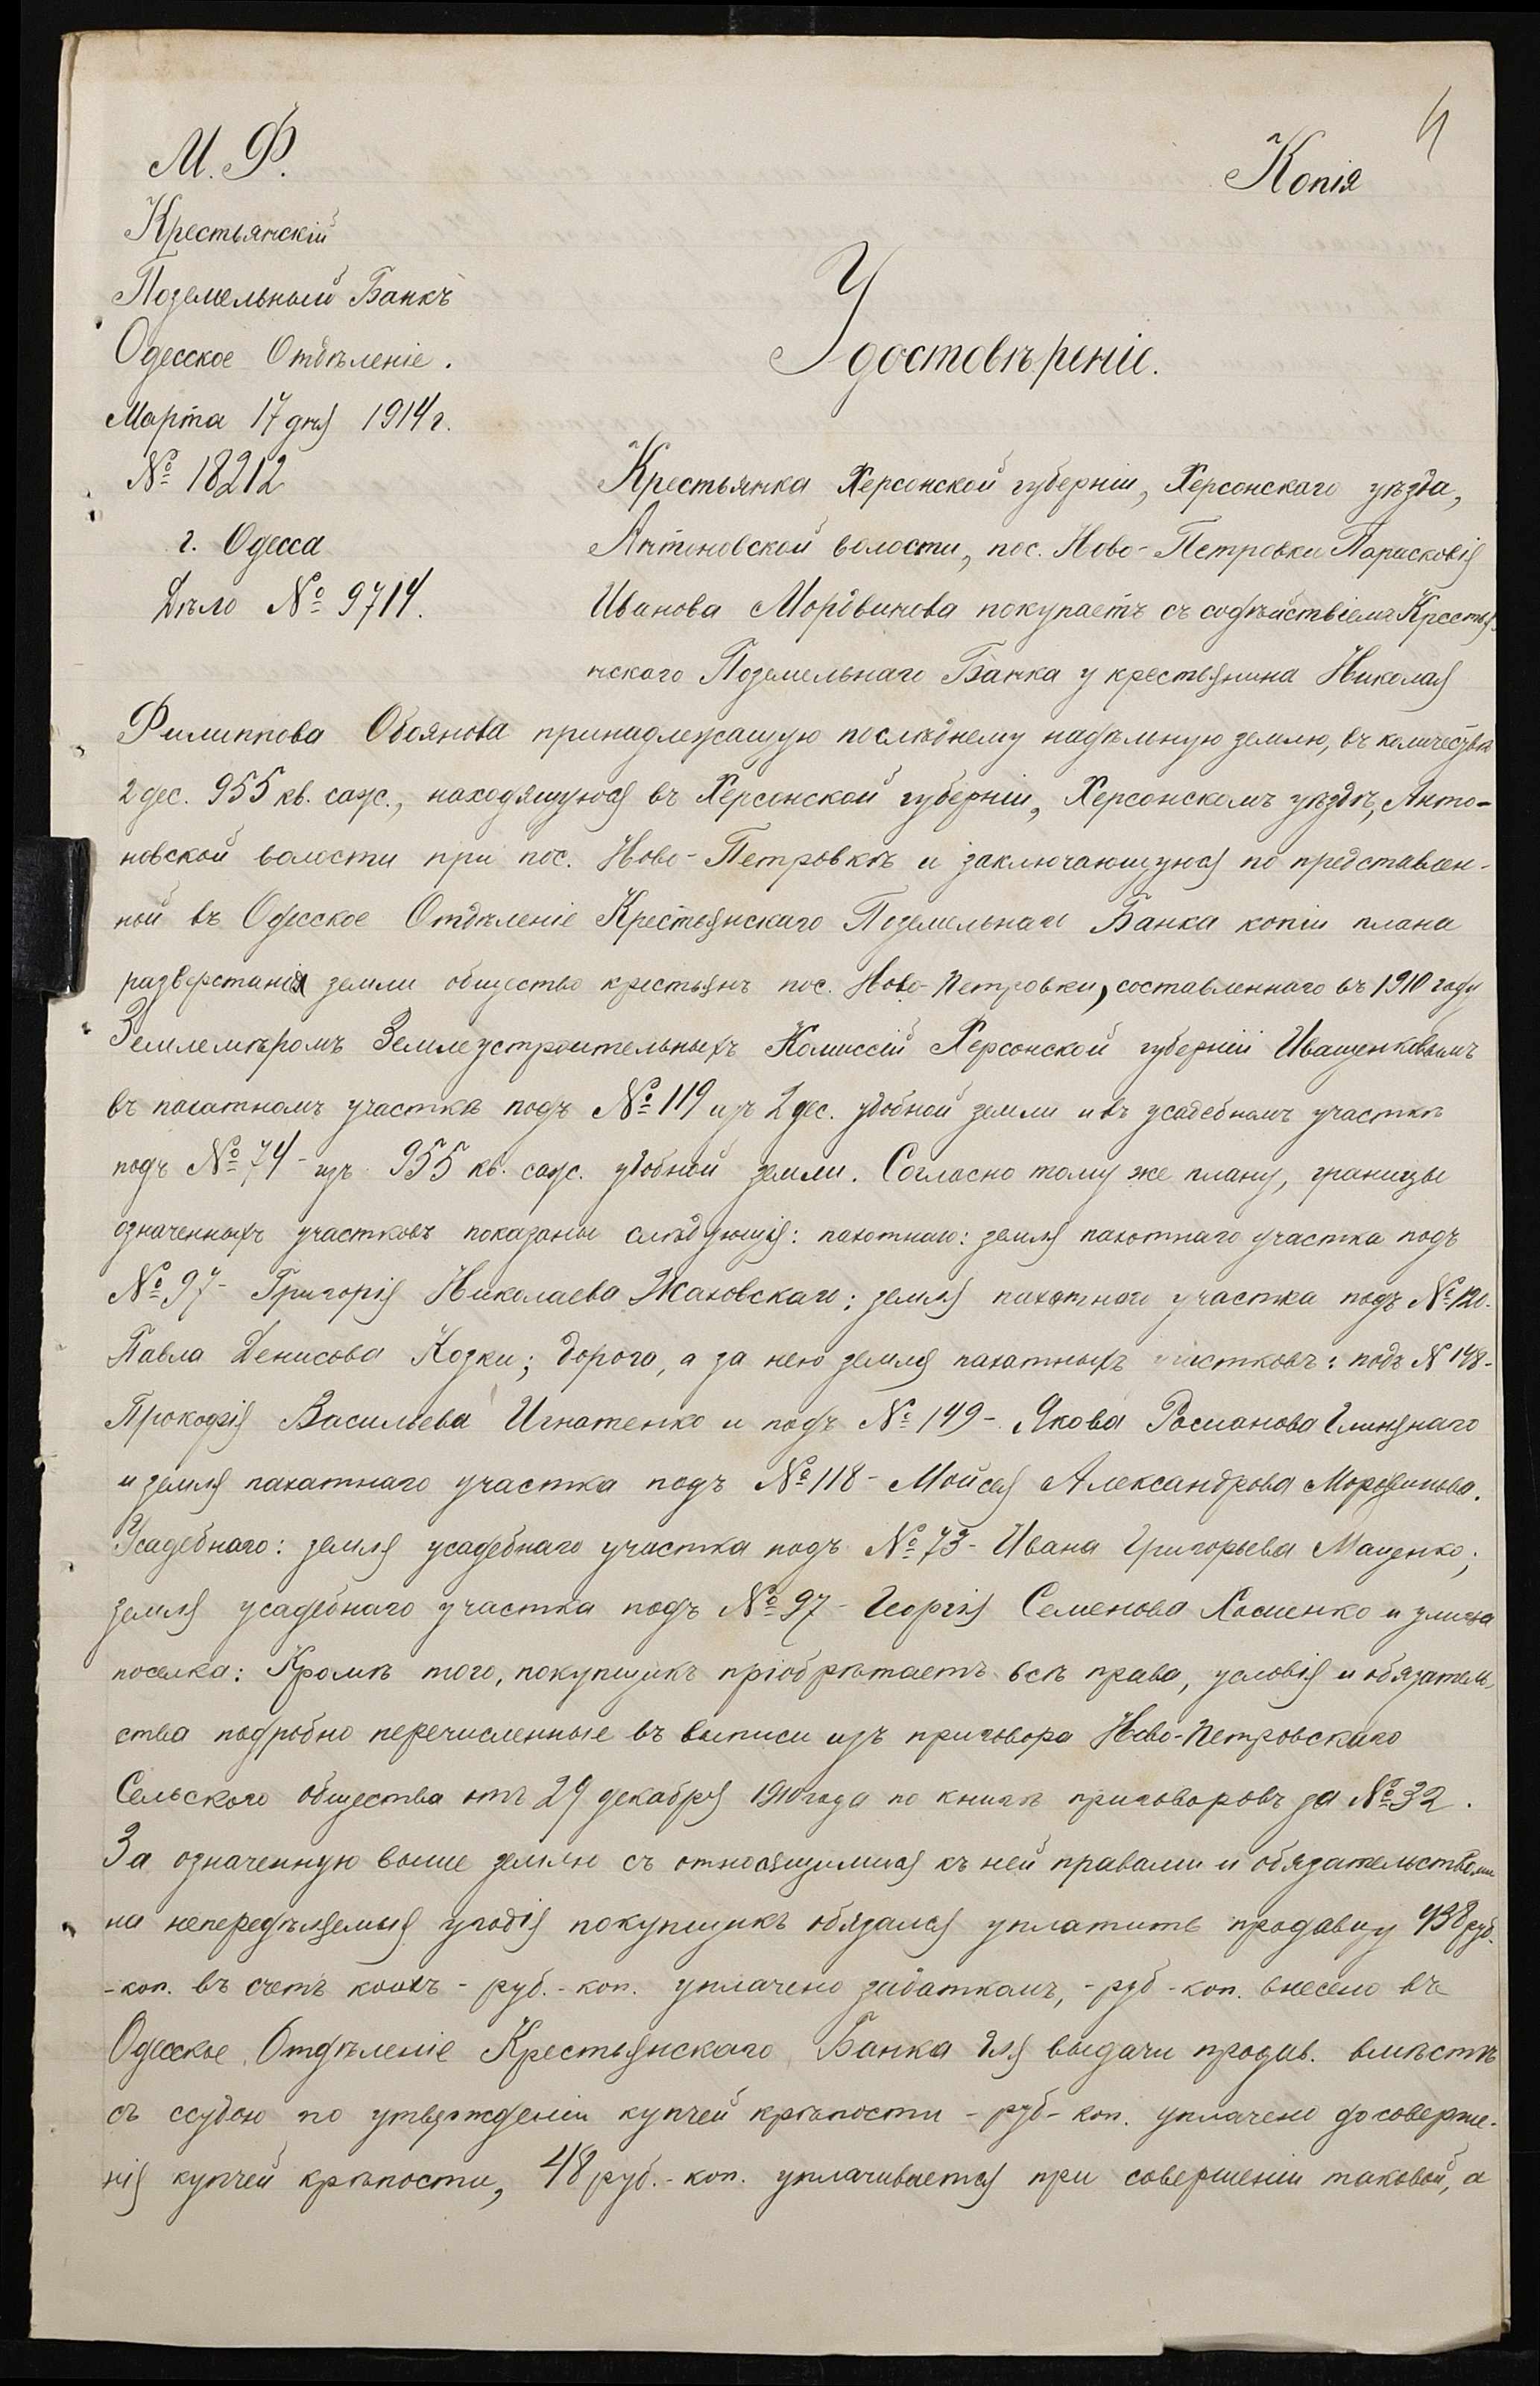 4
М. Ф.
Копія
Крестьянскій
Поземельный Банкъ
Одесское Отдѣленіе.
Марта 17 дня 1914 г.
№ 18212
г. Одесса
Дѣло № 9714.
Удостовѣреніе.
Крестьянка Херсонской губерніи, Херсонскаго уѣзда,
Антоновской волости, пос. Ново-Петровки Парасковія
Иванова Мордвинова покупаетъ съ содѣйствіемъ Крестья-
нского Поземельнаго Банка у крестьянина Николая
Филиппова Обоянова принадлежащую послѣднему надѣльную землю, въ количествѣ
2 дес. 955 кв. саж., находящуюся въ Херсонской губерніи, Херсонскомъ уѣздѣ, Анто-
новской волости при пос. Ново-Петровкѣ и заключающуюся по представлен-
ной въ Одесское Отдѣленіе Крестьянскаго Поземельнаго Банка копіи плана
разверстанія земли общества крестьянъ пос. Ново-Петровки, составленнаго въ 1910 году
Землемѣромъ Землеустроительныхъ Комиссій Херсонской губерніи Иващенковымъ
въ пахатномъ участкѣ подъ № 119 изъ 2 дес. удобной земли и въ усадебномъ участкѣ
подъ № 74 - изъ 955 кв. саж. удобной земли. Согласно тому же плану, границы
означенныхъ участковъ показаны слѣдующія: пахотнаго: земля пахотнаго участка подъ
№ 97 - Григорія Николаева Жаховскаго; земля пахотнаго участка подъ № 120 -
Павла Денисова Козки; дорога, а за нею земля пахатныхъ участковъ: подъ № 148 -
Прокофія Васильева Игнатенко и подъ № 149 - Якова Романова Глинянаго
и земля пахатнаго участка подъ № 118 - Мойсея Александрова Мордвинова.
Усадебнаго: земля усадебнаго участка подъ № 73 - Ивана Григорьева Маценко;
земля усадебнаго участка подъ № 97 - Георгія Семенова Хоменко и улица
поселка: Кромѣ того, покупщикъ пріобрѣтаетъ всѣ права, условія и обязатель-
ства подробно перечисленные въ выписи изъ приговора Ново-Петровскаго
Сельского общества отъ 29 декабря 1910 года по книгѣ приговоровъ за № 32.
За означенную выше землю съ относящимися къ ней правами и обязательствами
на непередѣляемыя угодія покупщикъ обязался уплатить продавцу 438 руб.
- коп. въ счетъ коихъ - руб. - коп. уплачено задаткомъ, - руб - коп. внесено въ
Одесское Отдѣленіе Крестьянскаго Банка для выдачи продав. вмѣстѣ
съ ссудою по утвержденіи купчей крѣпости - руб - коп. уплачено до соверше-
нія купчей крѣпости, 48 руб. - коп. уплачивается при совершеніи таковой, а